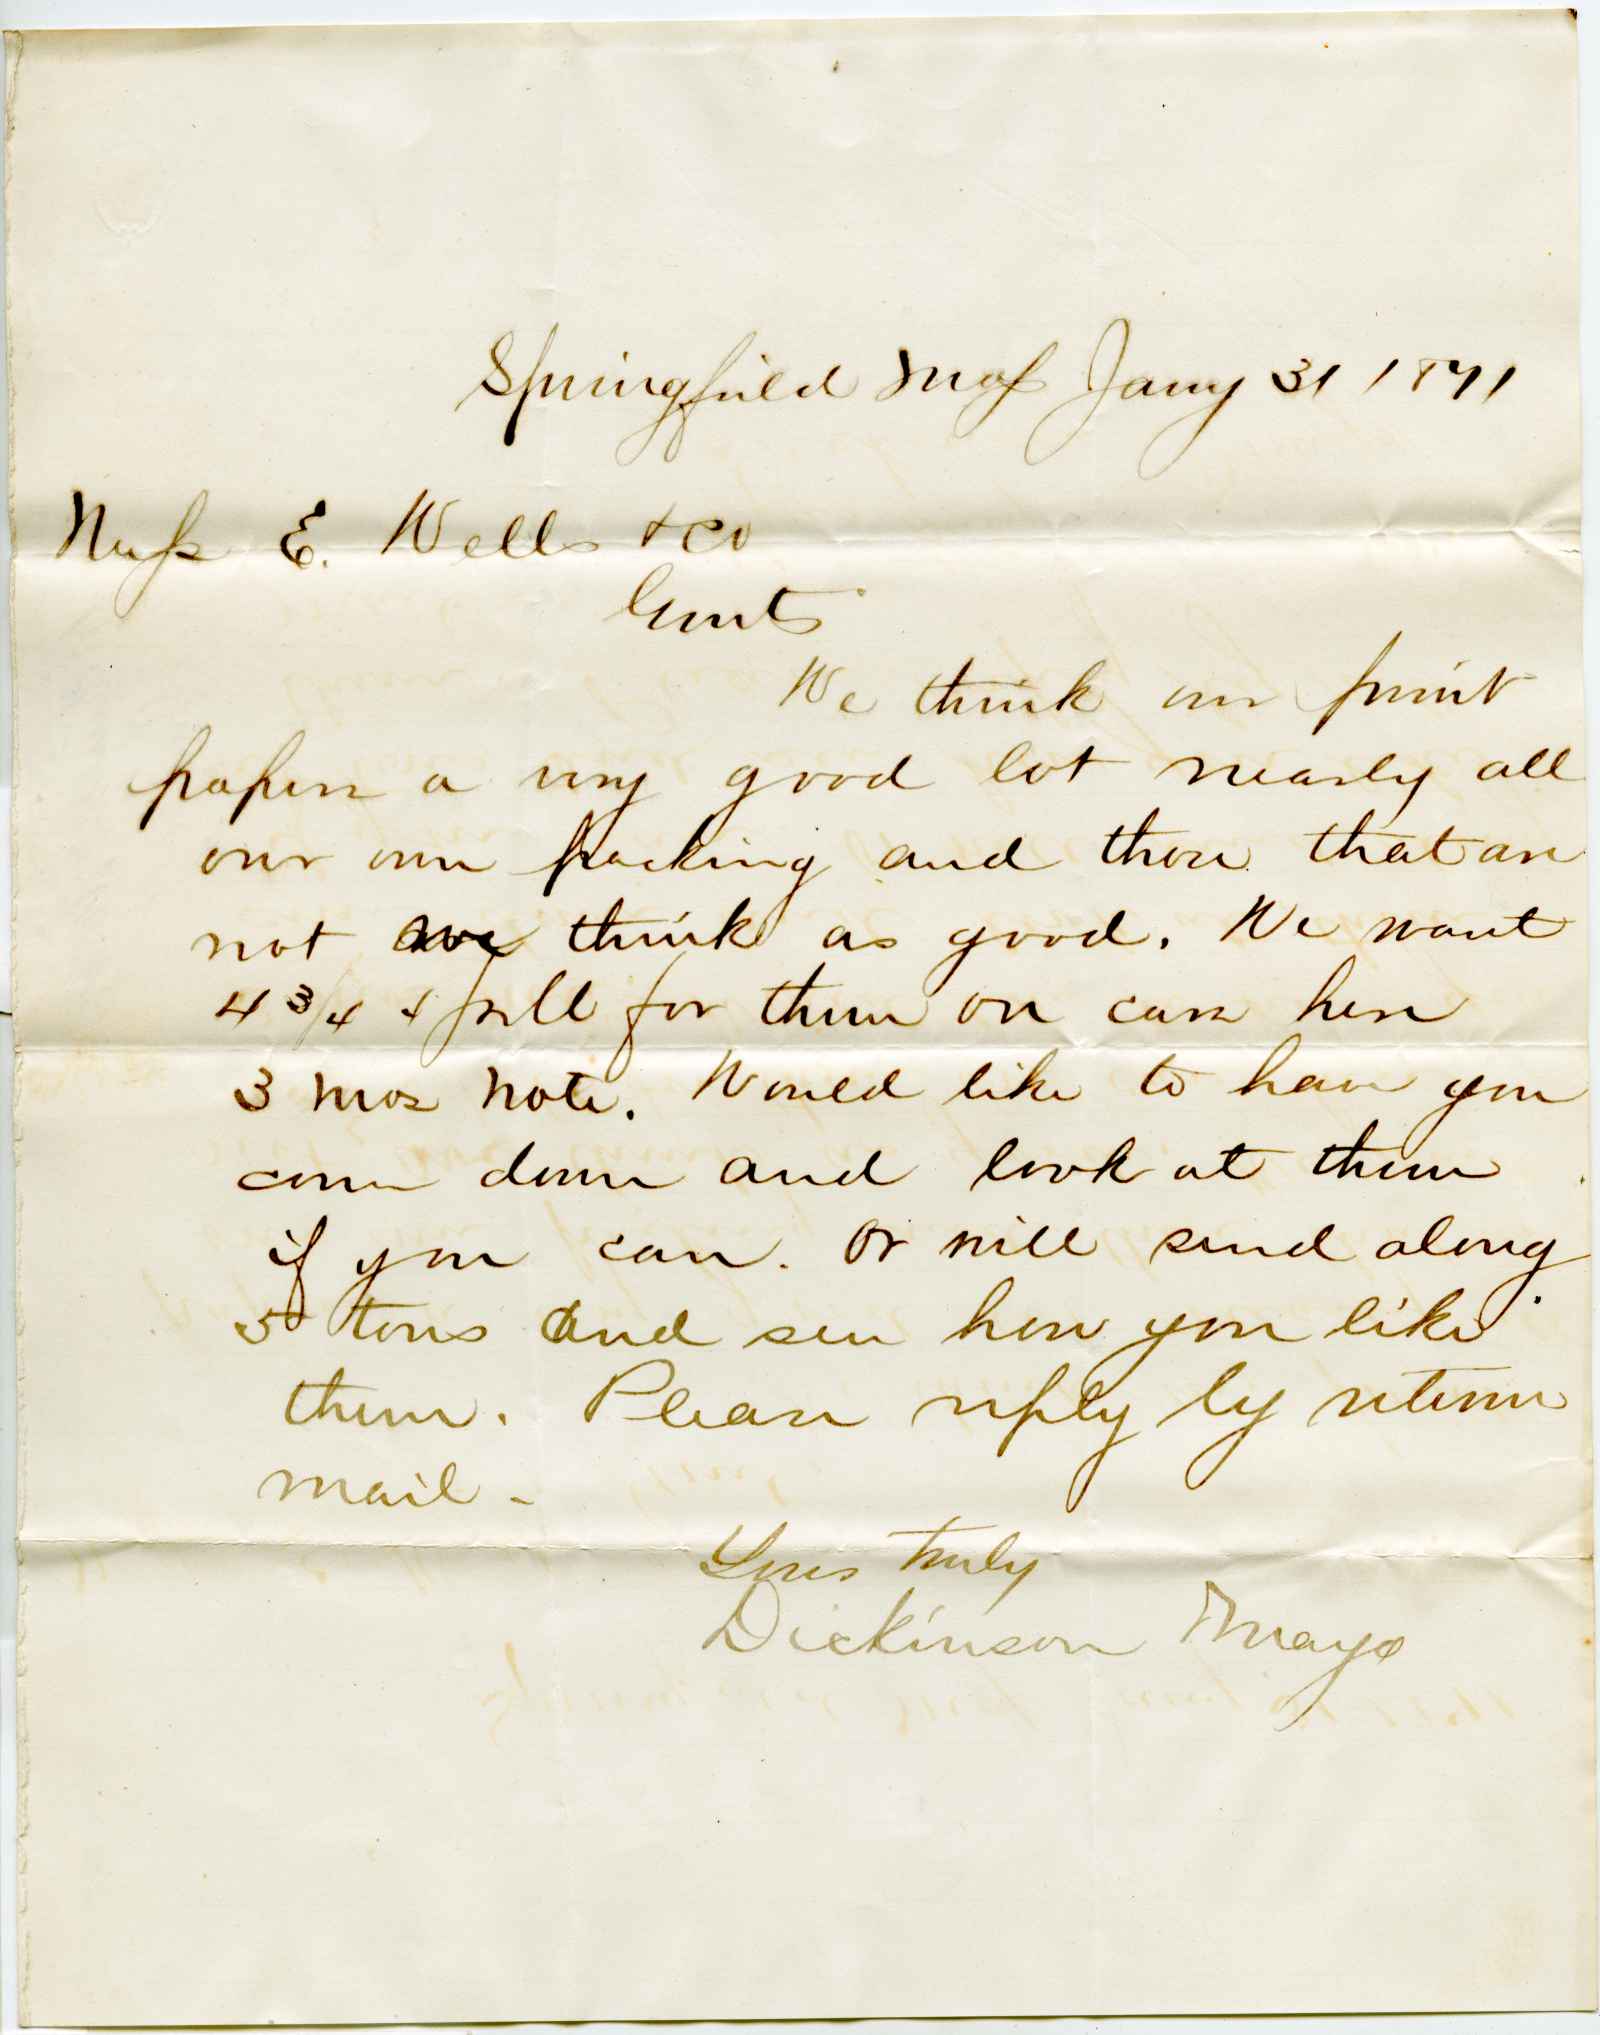 Springfield Mass Jany 31 1871
Messrs E. Wells & Co
Gents
We think our print
papers a very good lot nearly all
our own packing and those that are
not we think as good. We want
4 3/4 & for them on cars here
3 mos note. Would like to have you
come down and look at them
if you can. Or will send along
5 tons and see how you like
them. Please reply by return
mail -
Yours truly
Dickinson & Mayo